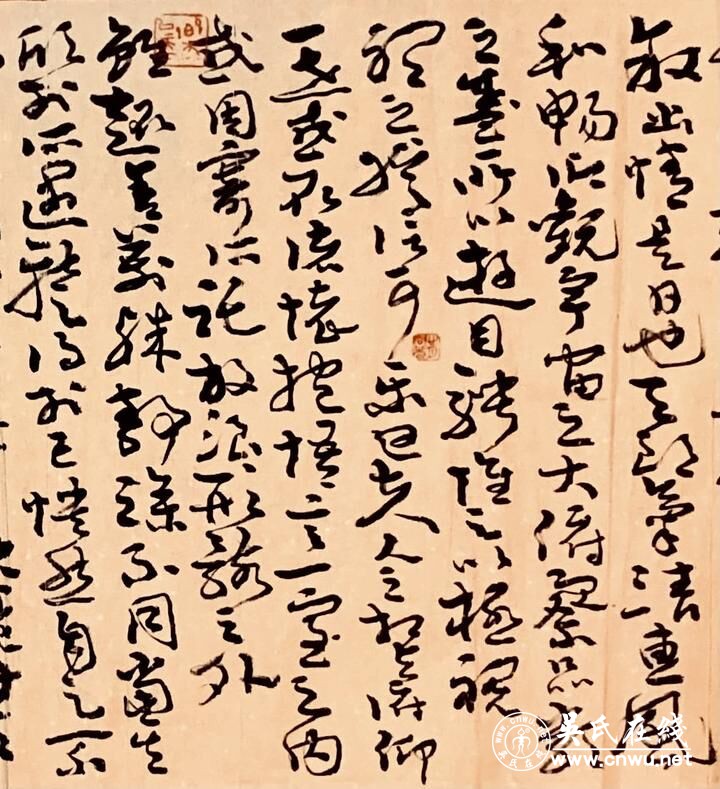 敘幽情是日也天朗氣清惠風
和暢仰觀宇宙之大俯察品類
之盛所以遊目騁懷足以極視
聽之娛信可樂也夫人之相與俯仰
一世或取諸懷抱悟言一室之內
或因寄所託放浪形骸之外
雖趣舍萬殊靜躁不同當其
欣於所遇暫得於己快然自足不
吴氏在线
www.cnwu.net